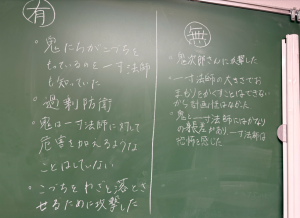 有
・鬼にわがこづちを
もっているのを一寸法師
も知っていた
・過剰防衛
・鬼は一寸法師に対して
危害を加えるような
ことはしていない
・こづちをわざと落とさ
せるために攻撃した
無
・鬼次郎さんに攻撃した
・一寸法師の大きさでお
まもりをかすことはできない
から計画性はなかった
・鬼と一寸法師にはかなり
の身長差があり、一寸法師は
恐怖を感じた